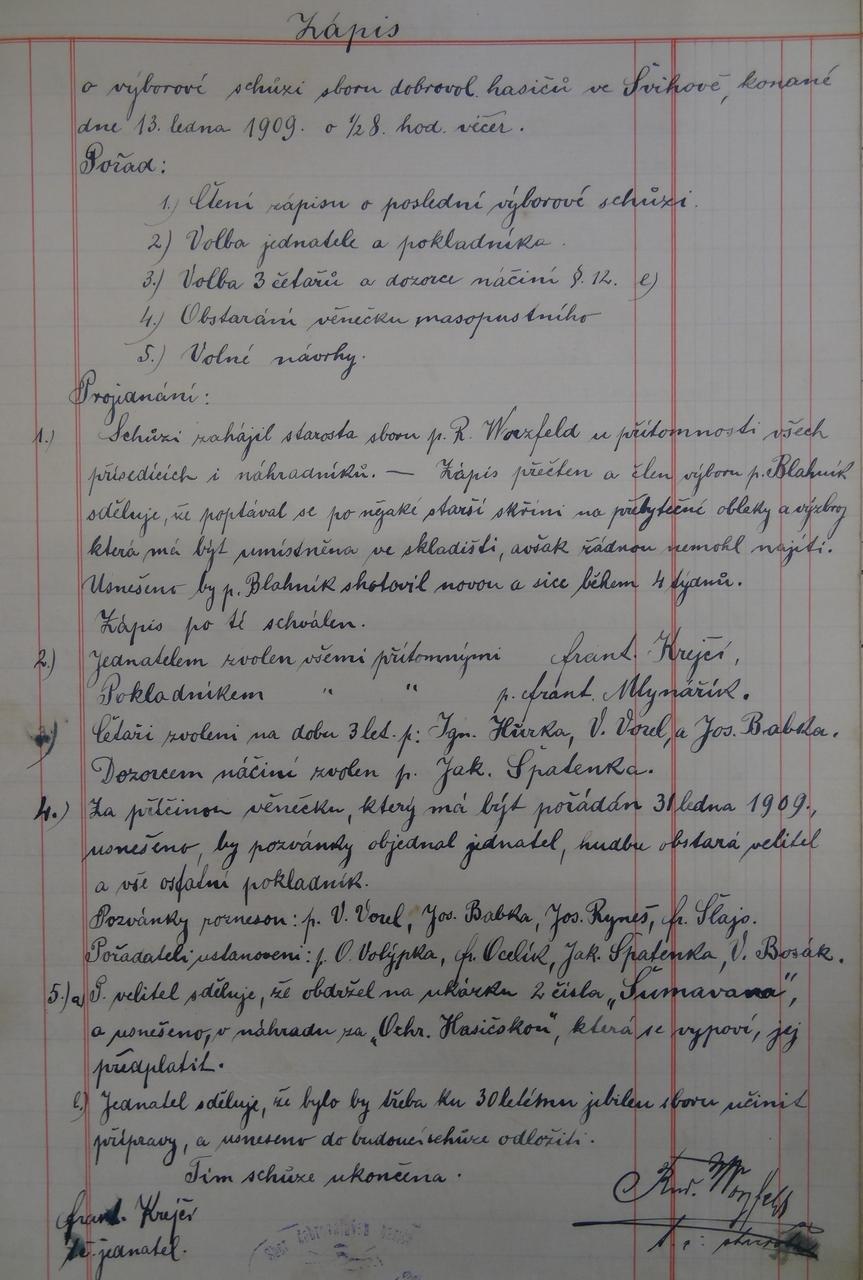 Zápis
o výborové schůzi sboru dobrovol. hasičů ve Švihově, konané
dne 13. ledna 1909. o 1/2 8. hod. večer.
Pořad:
1.) Čtení zápisu o poslední výborové schůzi.
2) Volba jednatele a pokladníka.
3.) Volba 3 četařů a dozorce náčiní §. 12. e)
4.) Obstarání věnečku masopustního
5.) Volné návrhy.
Projednání:
1.) Schůzi zahájil starosta sboru p. R. Worzfeld u přítomnosti všech
přísedících i náhradníků. — Zápis přečten a člen výboru p. Blahník
sděluje, že poptával se po nějaké starší skříni na přebytečné obleky a výzbroj
která má býti umístněna ve skladišti, avšak žádnou nemohl najíti.
Usnešeno by p. Blahník shotovil novou a sice během 4 týdnů.
Zápis po té schválen.
2.) Jednatelem zvolen všemi přítomnými frant. Krejčí,
Pokladníkem " " p. frant. Mlynářík.
3) Četaři zvoleni na dobu 3 let. p: Ign. Hůrka, V. Vorel, a Jos. Babka.
Dozorcem náčiní zvolen p. Jak. Špatenka.
4.) Za příčinou věnečku, který má býti pořádán 31 ledna 1909.,
usnešeno, by pozvánky objednal jednatel, hudbu obstará velitel
a vše ostatní pokladník.
Pozvánky roznesou: p. V. Vorel, Jos. Babka, Jos. Ryneš, fr. Šlajs.
Pořadateli ustanoveni: p. O. Volýpka, fr. Ocelík, Jak. Špatenka, V. Bosák.
5.) a P. velitel sděluje, že obdržel na ukázku 2 čísla „Šumavana",
a usnešeno, v náhradu za „Ochr. Hasičskou", která se vypoví, jej
předplatit.
b.) Jednatel sděluje, že bylo by třeba ku 30 letému jubileu sboru učinit
přípravy, a usneseno do budoucí schůze odložiti.
Tím schůze ukončena.
frant. Krejčí
jednatel.
Rud. Worzfeld
t. č. starosta